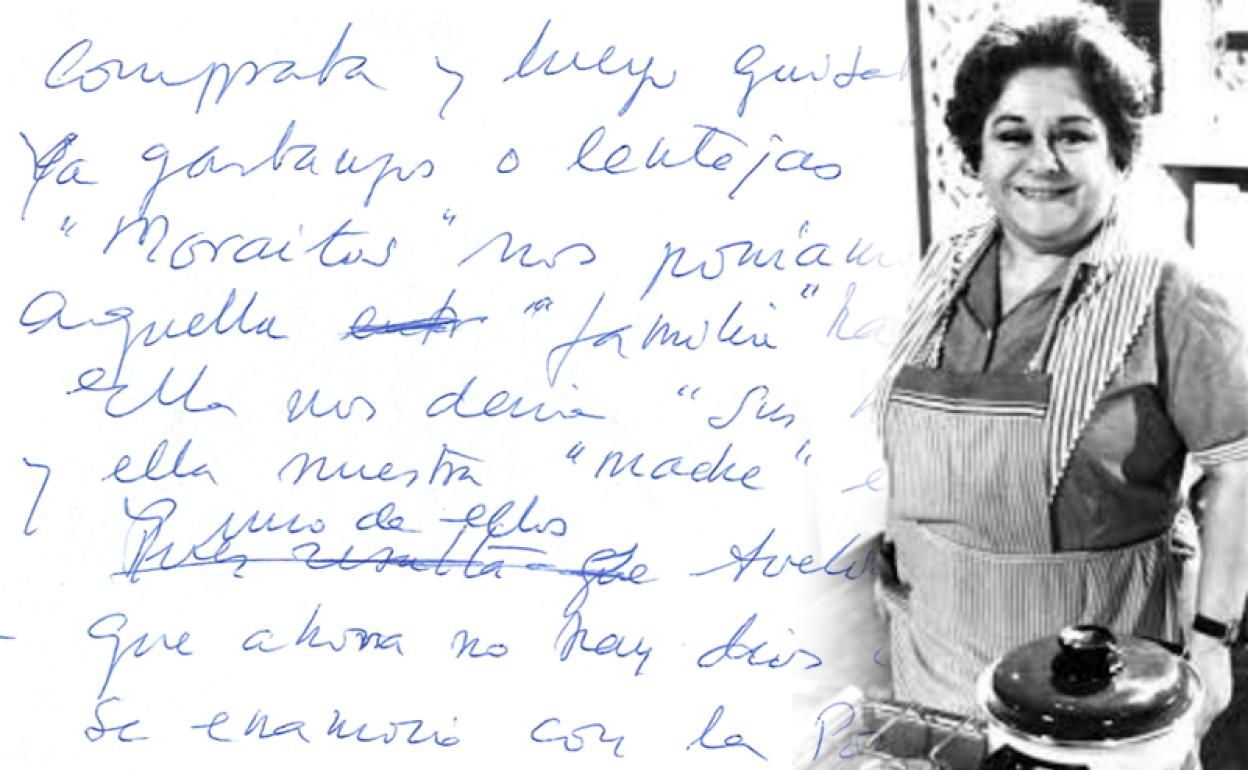 Compraba y luego guisa
Ya garbanzos o lentejas
"Moraitos" nos ponían
Aquella "familia" ha
ella nos decía "Sus
y ella nuestra "madre" e
Y uno de ellos
Pues resulta que Aveli
que ahora no hay dios
se enamoró con la Po